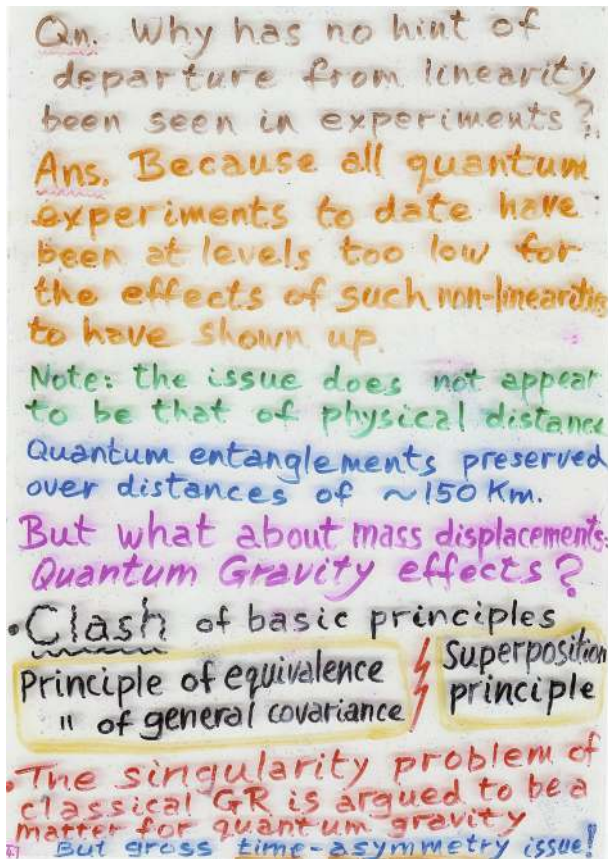 Qn. Why has no hint of
departure from linearity
been seen in experiments?
Ans. Because all quantum
experiments to date have
been at levels too low for
the effects of such non-linearities
to have shown up.
Note: the issue does not appear
to be that of physical distance
Quantum entanglements preserved
over distances of ~150 Km.
But what about mass displacements:
Quantum Gravity effects?
• Clash of basic principles
Principle of equivalence
" of general covariance
Superposition
principle
• The singularity problem of
classical GR is argued to be a
matter for quantum gravity
But gross time-asymmetry issue!